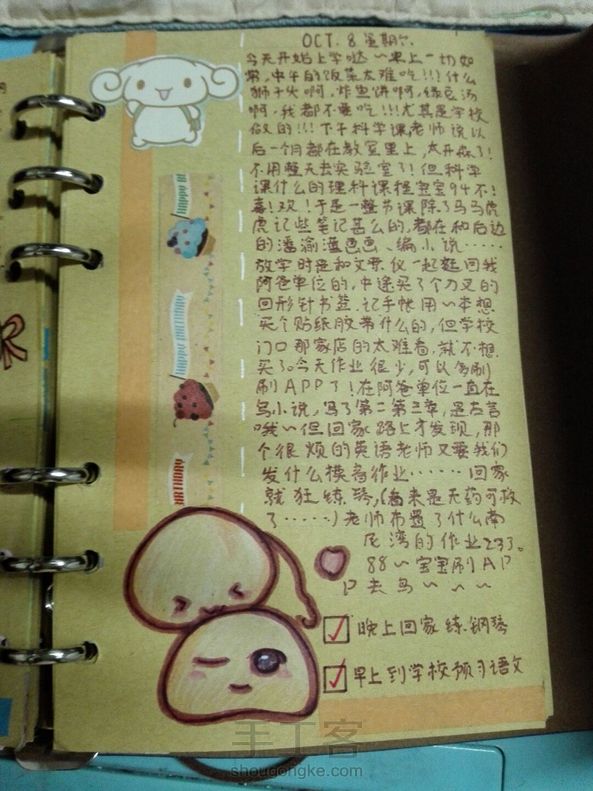 OCT. 8 星期六
今天开始上学哒～早上一切如
常,中午的饭菜太难吃!!!什么
狮子头啊,炸鱼饼啊,绿豆汤
啊,我都不要吃!!!尤其是学校
做的!!!下午科学课老师说以
后一个月都在教室里上,太开森了!
不用整天去实验室了!但科学
课什么的理科课程宝宝94不!
喜!欢!于是一整节课除了马马虎
虎记些笔记甚么的,都在和后边
的潘渝滢画画、编小说……
放学时是和文 仪一起 回我
阿爸单位的,中途买了个刀叉的
回形针书签.记手帐用～本想
买个贴纸胶带什么的,但学校
门口那家店的太难看,就不想
买了。今天作业很少,可以多刷
刷APP了!在阿爸单位一直在
写小说,写了第二第三章,是古言
哦～但回家路上才发现,那
个很烦的英语老师又要我们
发什么模 作业……回家
就狂练琴,(看来是无药可救
了……)老师布置了什么南
尼湾的作业233。
88～宝宝刷AP
P去鸟～～～
晚上回家练钢琴
早上到学校预习语文
HAPPY BI
HAPPY BIRTHDAY
BIRTHDAY
手工客
shougongke.com